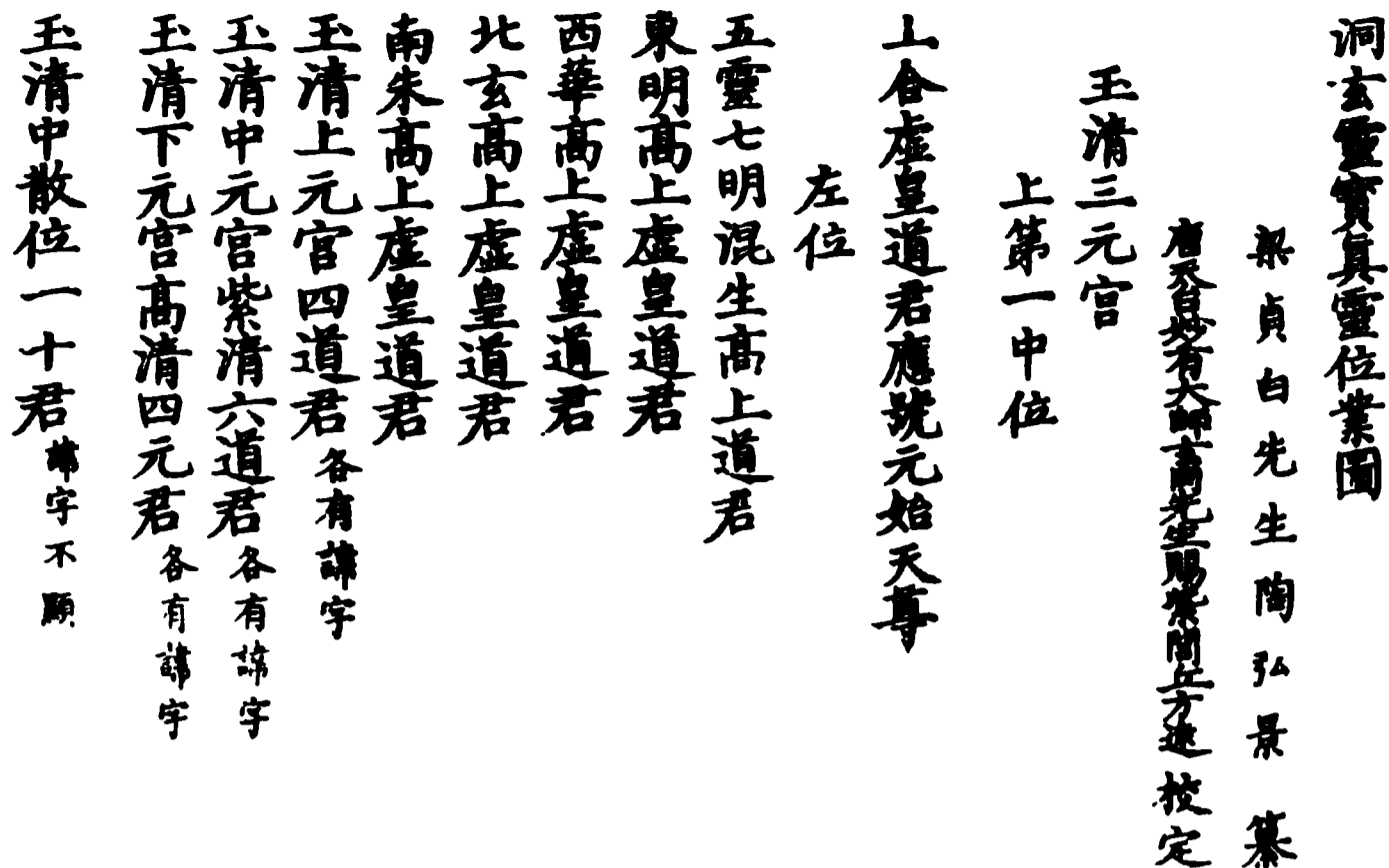 洞玄靈寶真靈位業圖
梁貞白先生陶弘景 纂
唐天台妙有大師玄同先生賜紫閭丘方遠 挍定
玉清三元宮
上第一中位
上合虛皇道君應號元始天尊
左位
五靈七明混生高上道君
東明高上虛皇道君
西華高上虛皇道君
北玄高上虛皇道君
南朱高上虛皇道君
玉清上元宮四道君各有諱字
玉清中元宮紫清六道君各有諱字
玉清下元宮高清四元君各有諱字
玉清中散位一十君諱字不顯